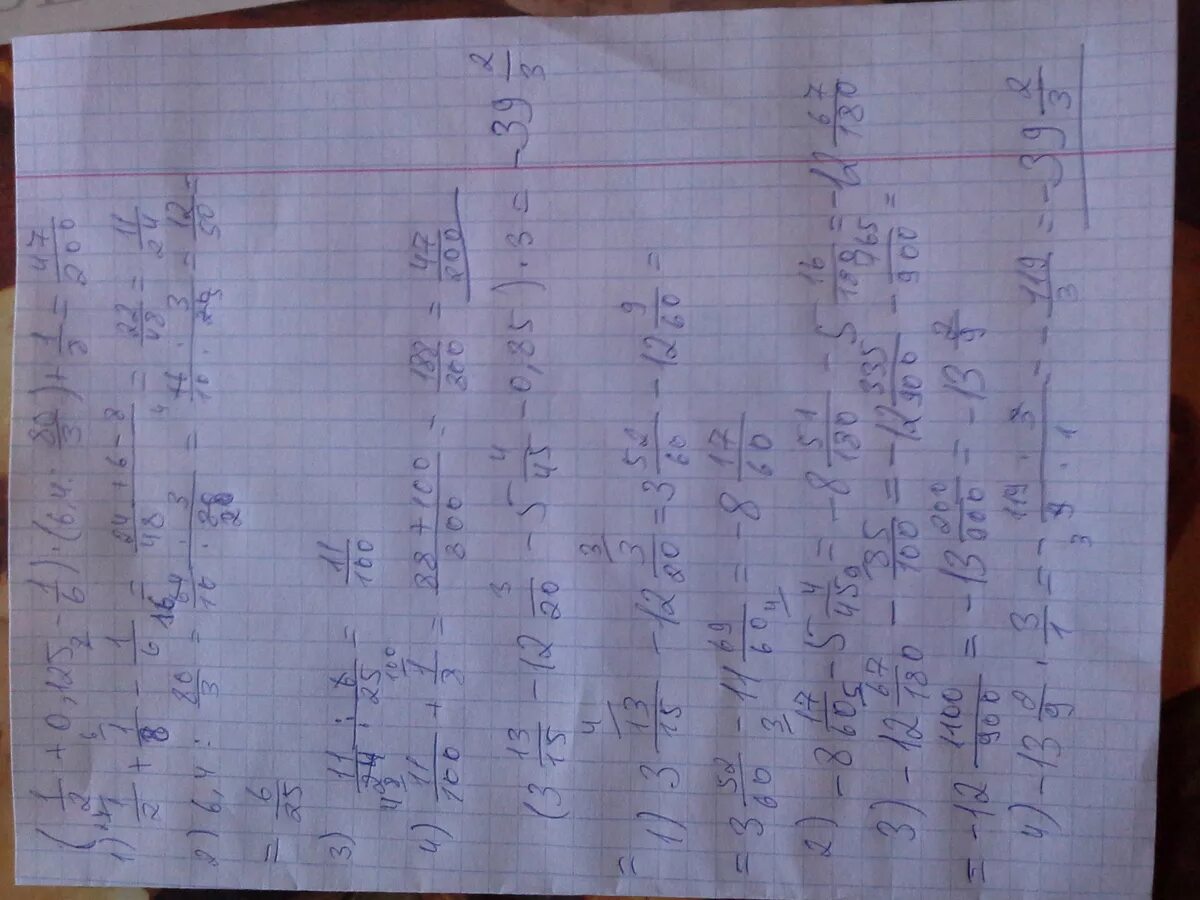 (1/2 + 0,125 - 1/6) · (6,4 : 80/3) + 1/8 = 47/200
1) 1/2 + 1/8 - 1/6 = 24+6-8/48 = 22/48 = 11/24
2) 6,4 : 80/3 = 64 · 3/10 · 80 = 4 · 3/10 · = 12/50 =
= 6/25
3) 11/24 · 6/25 = 11/100
4) 11/100 + 1/8 = 88+100/800 = 188/200 = 47/200
(3 13/15 - 12 3/20 - 5 4/45 - 0,85) · 3 = -39 2/3
1) 3 13/15 - 12 3/20 = 3 52/60 - 12 9/60 =
= 3 52/60 - 11 69/60 = -8 17/60
2) -8 17/60 - 5 4/45 = -8 51/180 - 5 16/180 = -12 67/180
3) -12 67/180 - 85/100 = -12 335/900 - 765/900 =
= -12 1100/900 = -13 200/900 = -13 2/9
4) -13 2/9 · 3/1 = - 119 · 3/9 · 1 = - 119/3 = -39 2/3